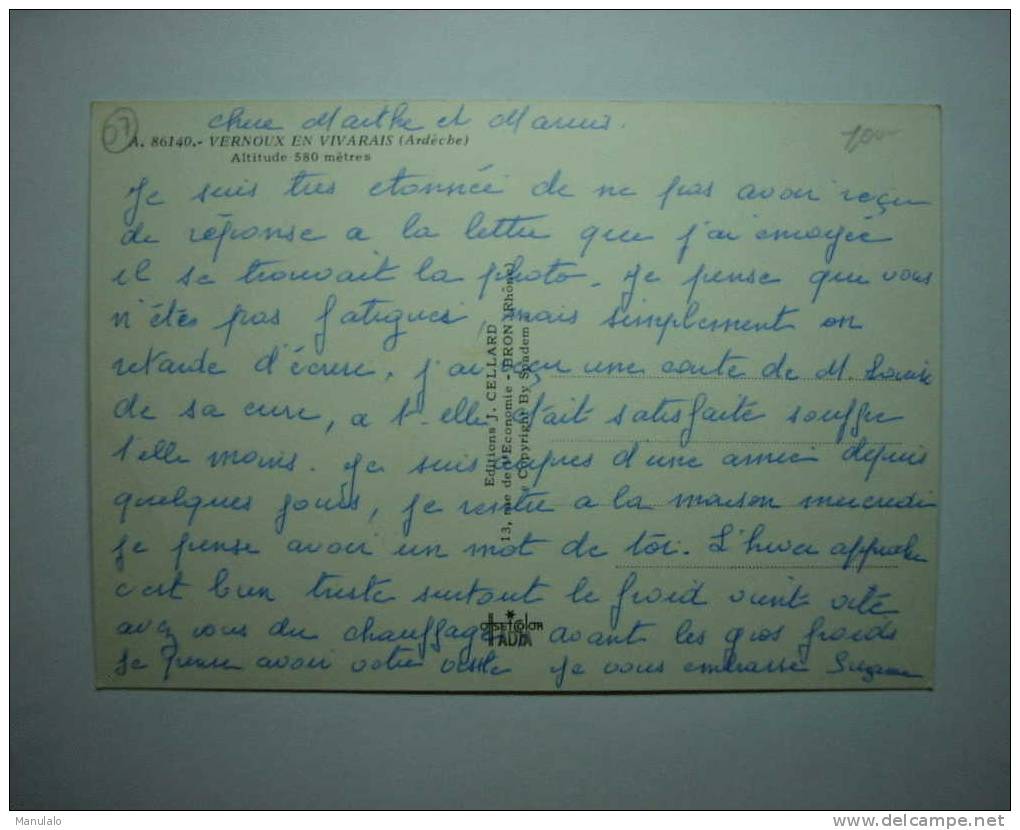 07
chere Marthe et Marius.
1000
A. 86140.- VERNOUX EN VIVARAIS (Ardèche)
Altitude 580 mètres
Je suis tres etonnée de ne pas avoir reçu
de réponse a la lettre que j'ai envoyée
il se trouvait la photo. Je pense que vous
n'étés pas fatigués, mais simplement en
retarde d'écrire. J'ai reçu une carte de M. Louise
de sa cure, a t-elle était satisfaite souffre
t'elle moins. Je suis aupres d'une amie depuis
quelques jours, je rentre a la maison mercredi
je pense avoir un mot de toi. L'hiver approche
c'est bien triste surtout le froid vient vite
avez vous du chauffage avant les gros froids
Je pense avoir votre visite Je vous embrasse Suzanne
Editions J. CELLARD
13, rue de l'Economie - BRON (Rhône)
Copyright By Spadem
OFFSETCOLOR
Manulalo
www.delcampe.net